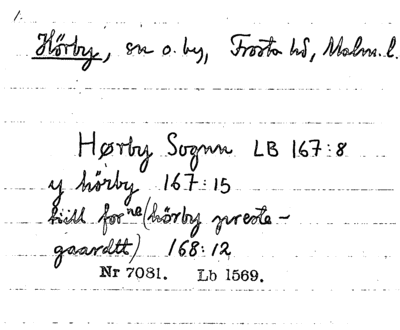 Hörby, sn o. by, Frosta hd, Malm. l.
Hørby Sognn LB 167:8
y hörby 167:15
till forne (hörby preste-
gaardtt) 168:12
Nr 7081. Lb 1569.